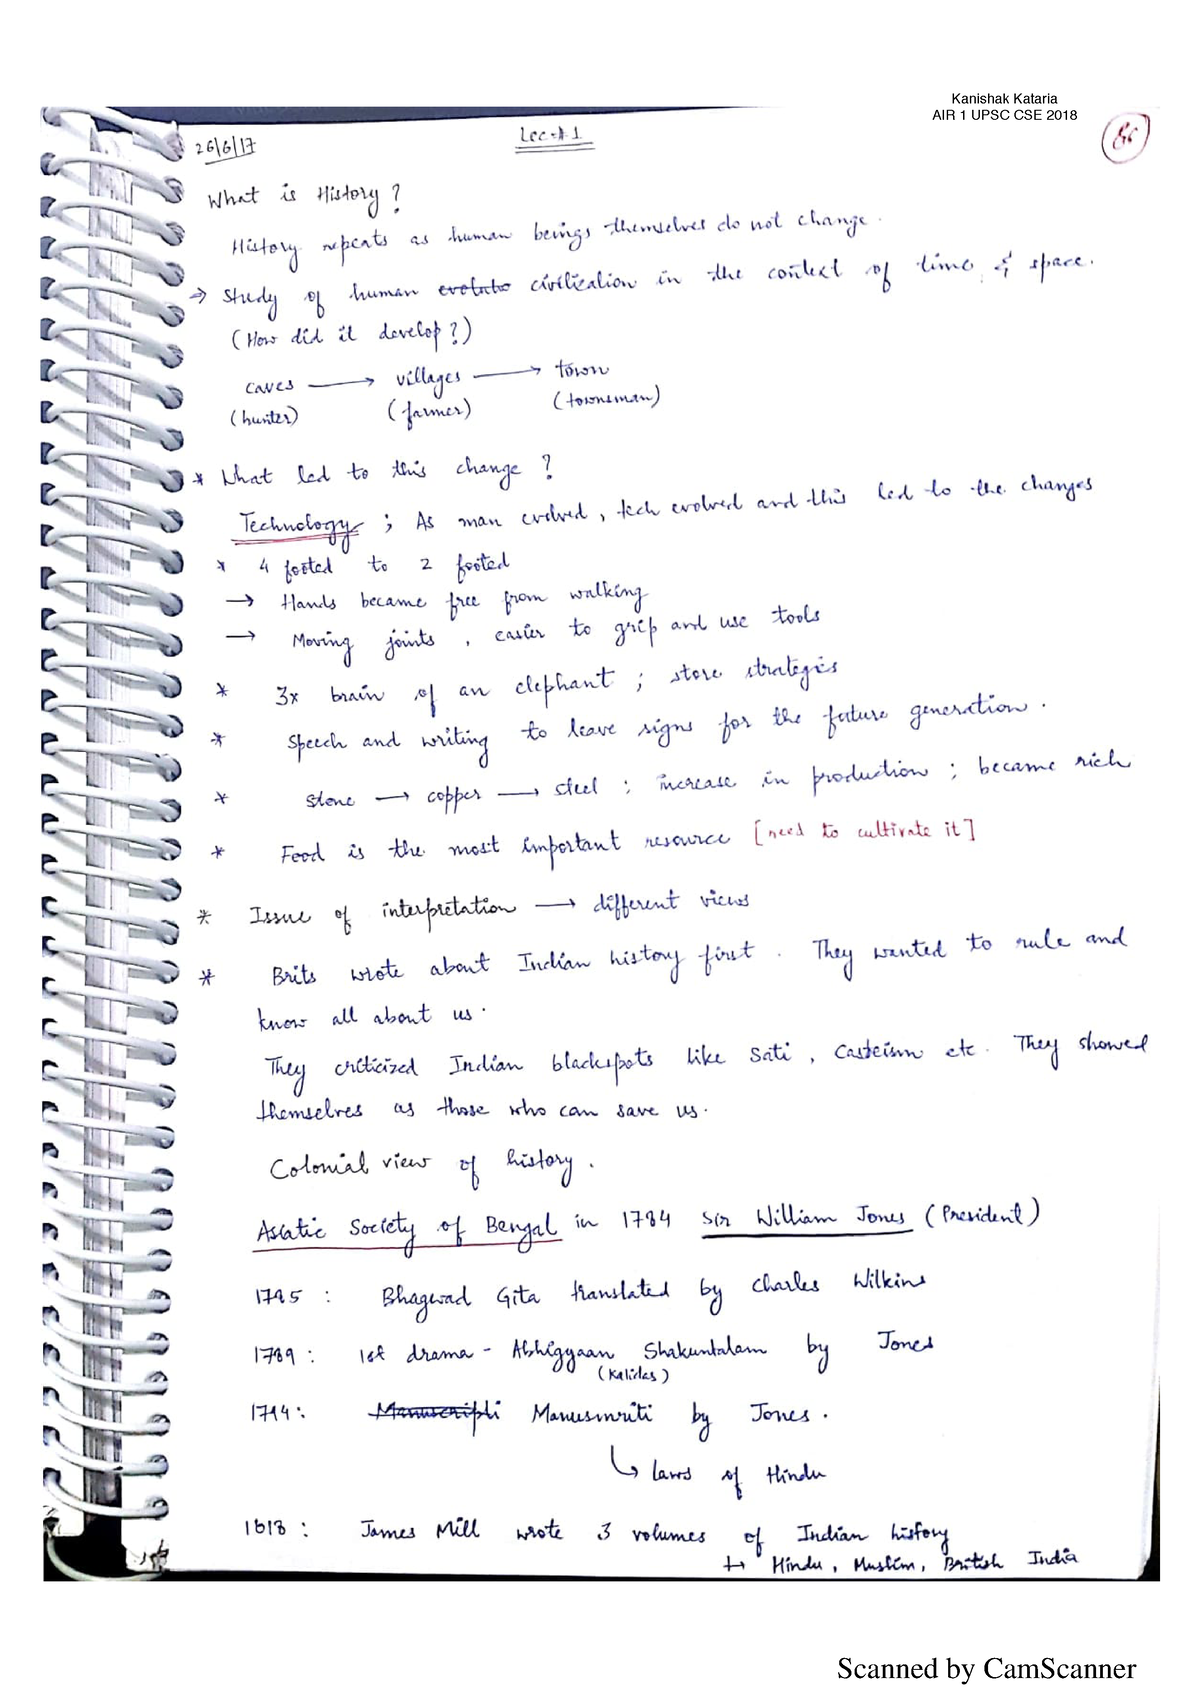 Kanishak Kataria
AIR 1 UPSC CSE 2018
26/6/17
Lec-#1
What is History?
History repeats as human beings themselves do not change.
→ Study of human evolute civilization in the context of time & space.
(How did it develop?)
caves → villages → town
(hunter) (farmer) (townsman)
* What led to this change?
Technology; As man evolved, tech evolved and this led to the changes
* 4 footed to 2 footed
→ Hands became free from walking
→ Moving joints, easier to grip and use tools
* 3x brain of an elephant; store strategies
* Speech and writing to leave signs for the future generation.
* Stone → copper → steel; increase in production; became rich
* Food is the most important resource [need to cultivate it]
* Issue of interpretation → different views
* Brits wrote about Indian history first. They wanted to rule and
know all about us.
They criticized Indian blackspots like Sati, Casteism etc. They showed
themselves as those who can save us.
Colonial view of history.
Asiatic Society of Bengal in 1784 Sir William Jones (President)
1785: Bhagwad Gita translated by Charles Wilkins
1789: 1st drama - Abhigyaan Shakuntalam by Jones
(Kalidas)
1794: Manuscripti Manusmriti by Jones.
↳ laws of Hindu
1818: James Mill wrote 3 volumes of Indian history
↳ Hindu, Muslim, British India
Scanned by CamScanner